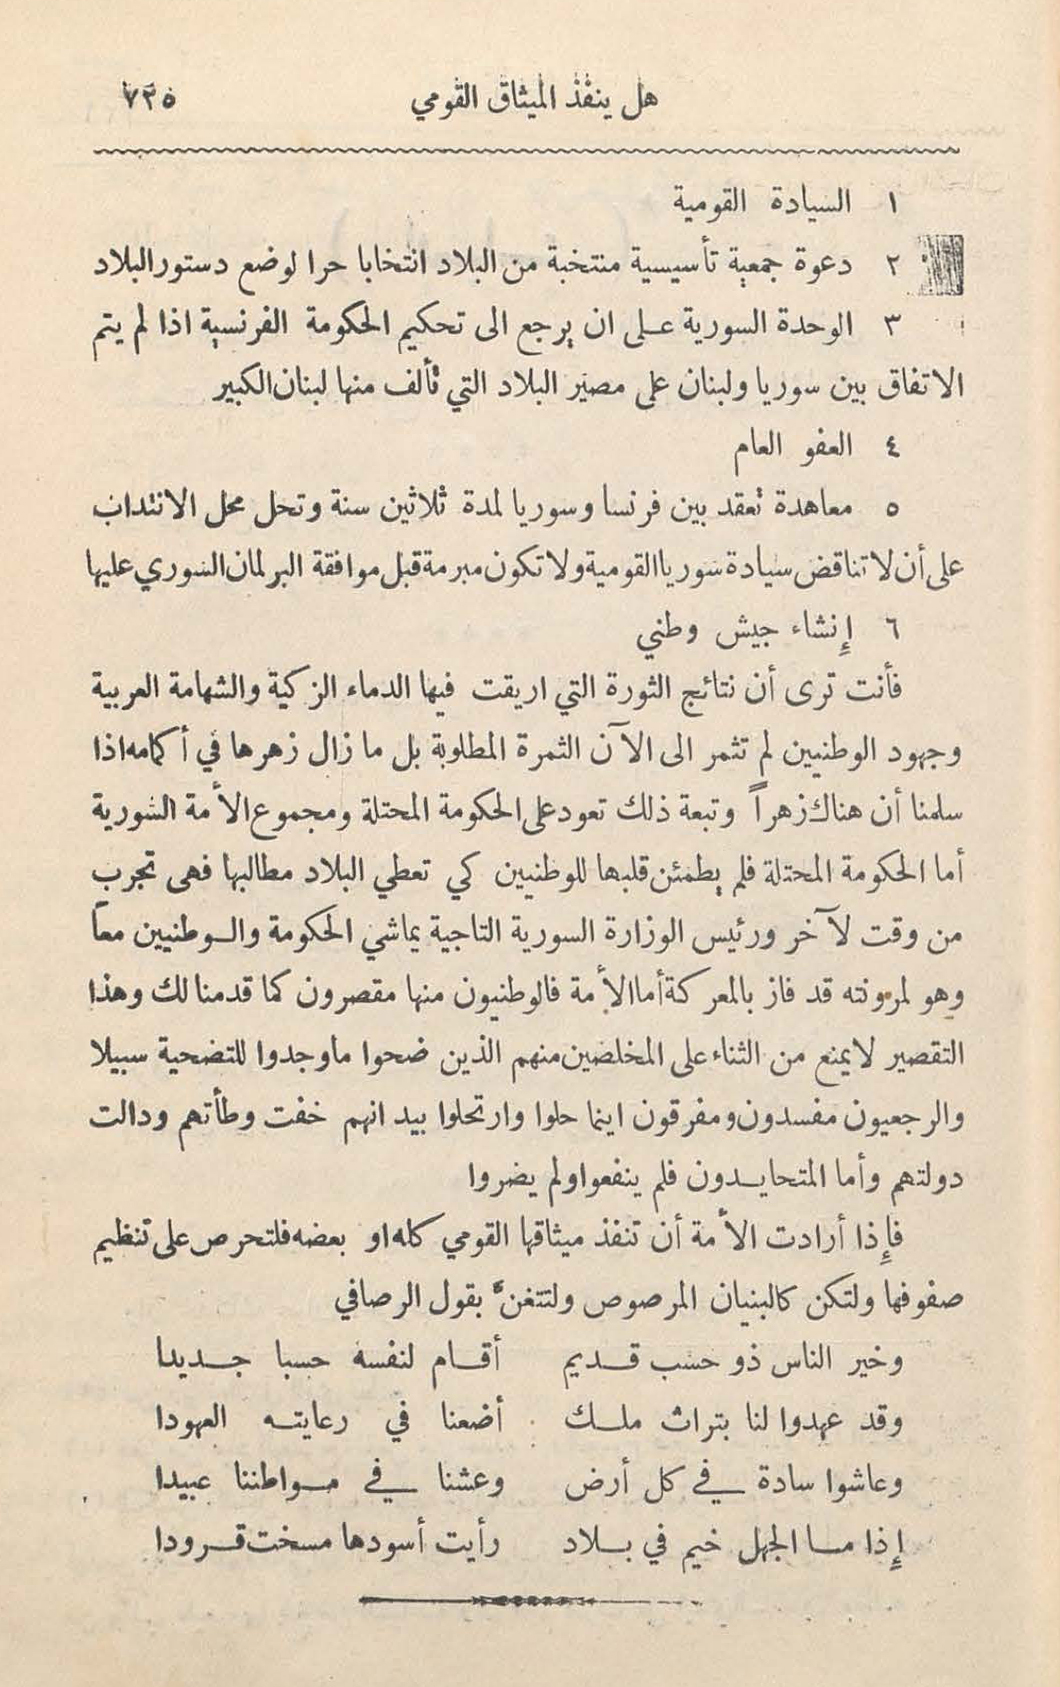 هل ينفذ الميثاق القومي ٧٣٥
١ السيادة القومية
٢ دعوة جمعية تأسيسية منتخبة من البلاد انتخابا حرا لوضع دستور البلاد
٣ الوحدة السورية على ان يرجع الى تحكيم الحكومة الفرنسية اذا لم يتم
الاتفاق بين سوريا ولبنان على مصير البلاد التي تألف منها لبنان الكبير
٤ العفو العام
٥ معاهدة تعقد بين فرنسا وسوريا لمدة ثلاثين سنة وتحل محل الانتداب
على أن لا تناقض سيادة سوريا القومية ولا تكون مبرمة قبل موافقة البرلمان السوري عليها
٦ إنشاء جيش وطني
فأنت ترى أن نتائج الثورة التي اريقت فيها الدماء الزكية والشهامة العربية
وجهود الوطنيين لم تثمر الى الآن الثمرة المطلوبة بل ما زال زهرها في أكمامه اذا
سلمنا أن هناك زهراً وتبعة ذلك تعود على الحكومة المحتلة ومجموع الأمة السورية
أما الحكومة المحتلة فلم يطمئن قلبها للوطنيين كي تعطي البلاد مطالبها فهى تجرب
من وقت لآخر ورئيس الوزارة السورية التاجية يماشي الحكومة والوطنيين معاً
وهو لمرونته قد فاز بالمعركة أما الأمة فالوطنيون منها مقصرون كما قدمنا لك وهذا
التقصير لا يمنع من الثناء على المخلصين منهم الذين ضحوا ما وجدوا للتضحية سبيلا
والرجعيون مفسدون ومفرقون اينما حلوا وارتحلوا بيد انهم خفت وطأتهم ودالت
دولتهم وأما المتحايدون فلم ينفعوا ولم يضروا
فإذا أرادت الأمة أن تنفذ ميثاقها القومي كله او بعضه فلتحرص على تنظيم
صفوفها ولتكن كالبنيان المرصوص ولتتغنَّ بقول الرصافي
وخير الناس ذو حسب قديم أقام لنفسه حسبا جديدا
وقد عهدوا لنا بتراث ملك أضعنا في رعايته العهودا
وعاشوا سادة في كل أرض وعشنا في مواطننا عبيدا
إذا ما الجهل خيم في بلاد رأيت أسودها مسخت قرودا